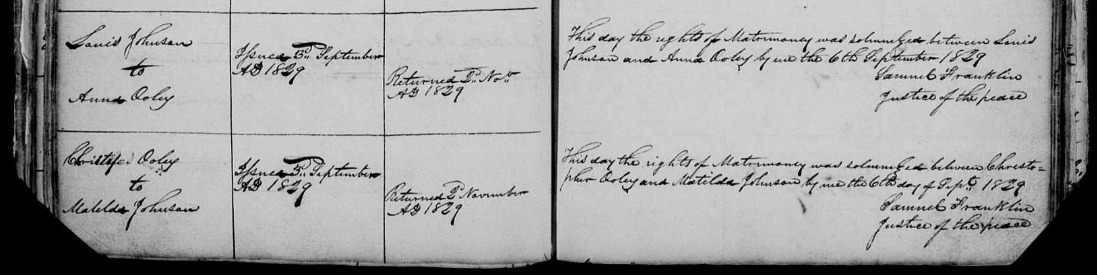 Louis Johnson
to
Anna Ooley
Issued 5th September
AD 1829
Returned 2d Novr
AD 1829
This day the rights of Matrimoney was solmnized between Louis
Johnson and Anna Ooley by me the 6th September 1829
Samuel Franklin
Justice of the peace
Christofer Ooley
to
Matilda Johnson
Issued 5th September
AD 1829
Returned 2d November
AD 1829
This day the rights of Matrimoney was solmnized between Christo=
pher Ooley and Matilda Johnson by me the 6th day of Septr 1829
Samuel Franklin
Justice of the peace